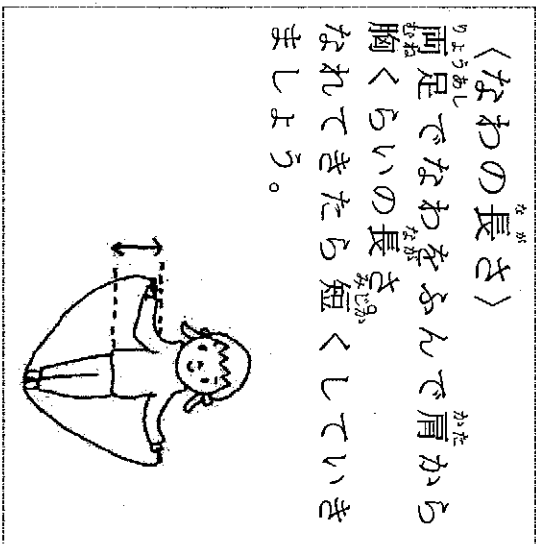 〈なわの長さ〉
両足でなわをふんで肩から
胸くらいの長さ
なれてきたら短くしていき
ましょう。